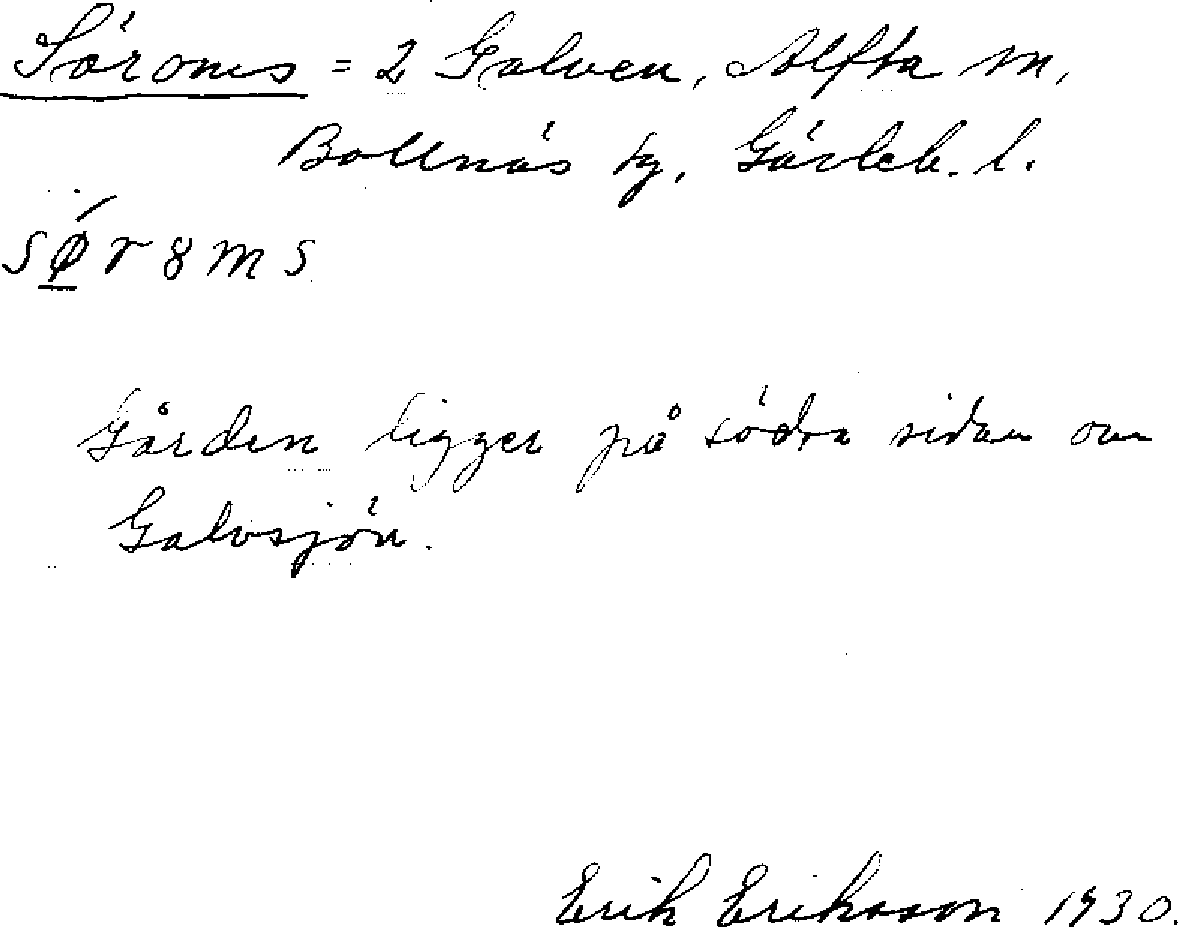 Söroms = 2 Galven, Alfta sn,
Bollnäs tg, Gävleb. l.
sǿ̲r8ms
Gården ligger på södra sidan om
Galvsjön.
Erik Eriksson 1930.